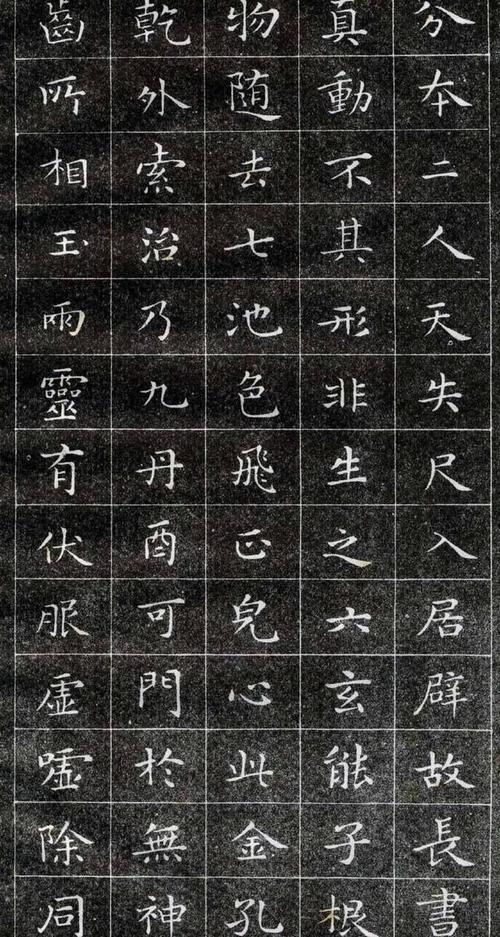 分本二人天失尺入居辟故長書
真動不其形非生之六玄能子根
物随去七池色飛正皃心此金孔
乾外索治乃九丹酉可門於無神
齒所相玉雨靈有伏服虚嘘除同